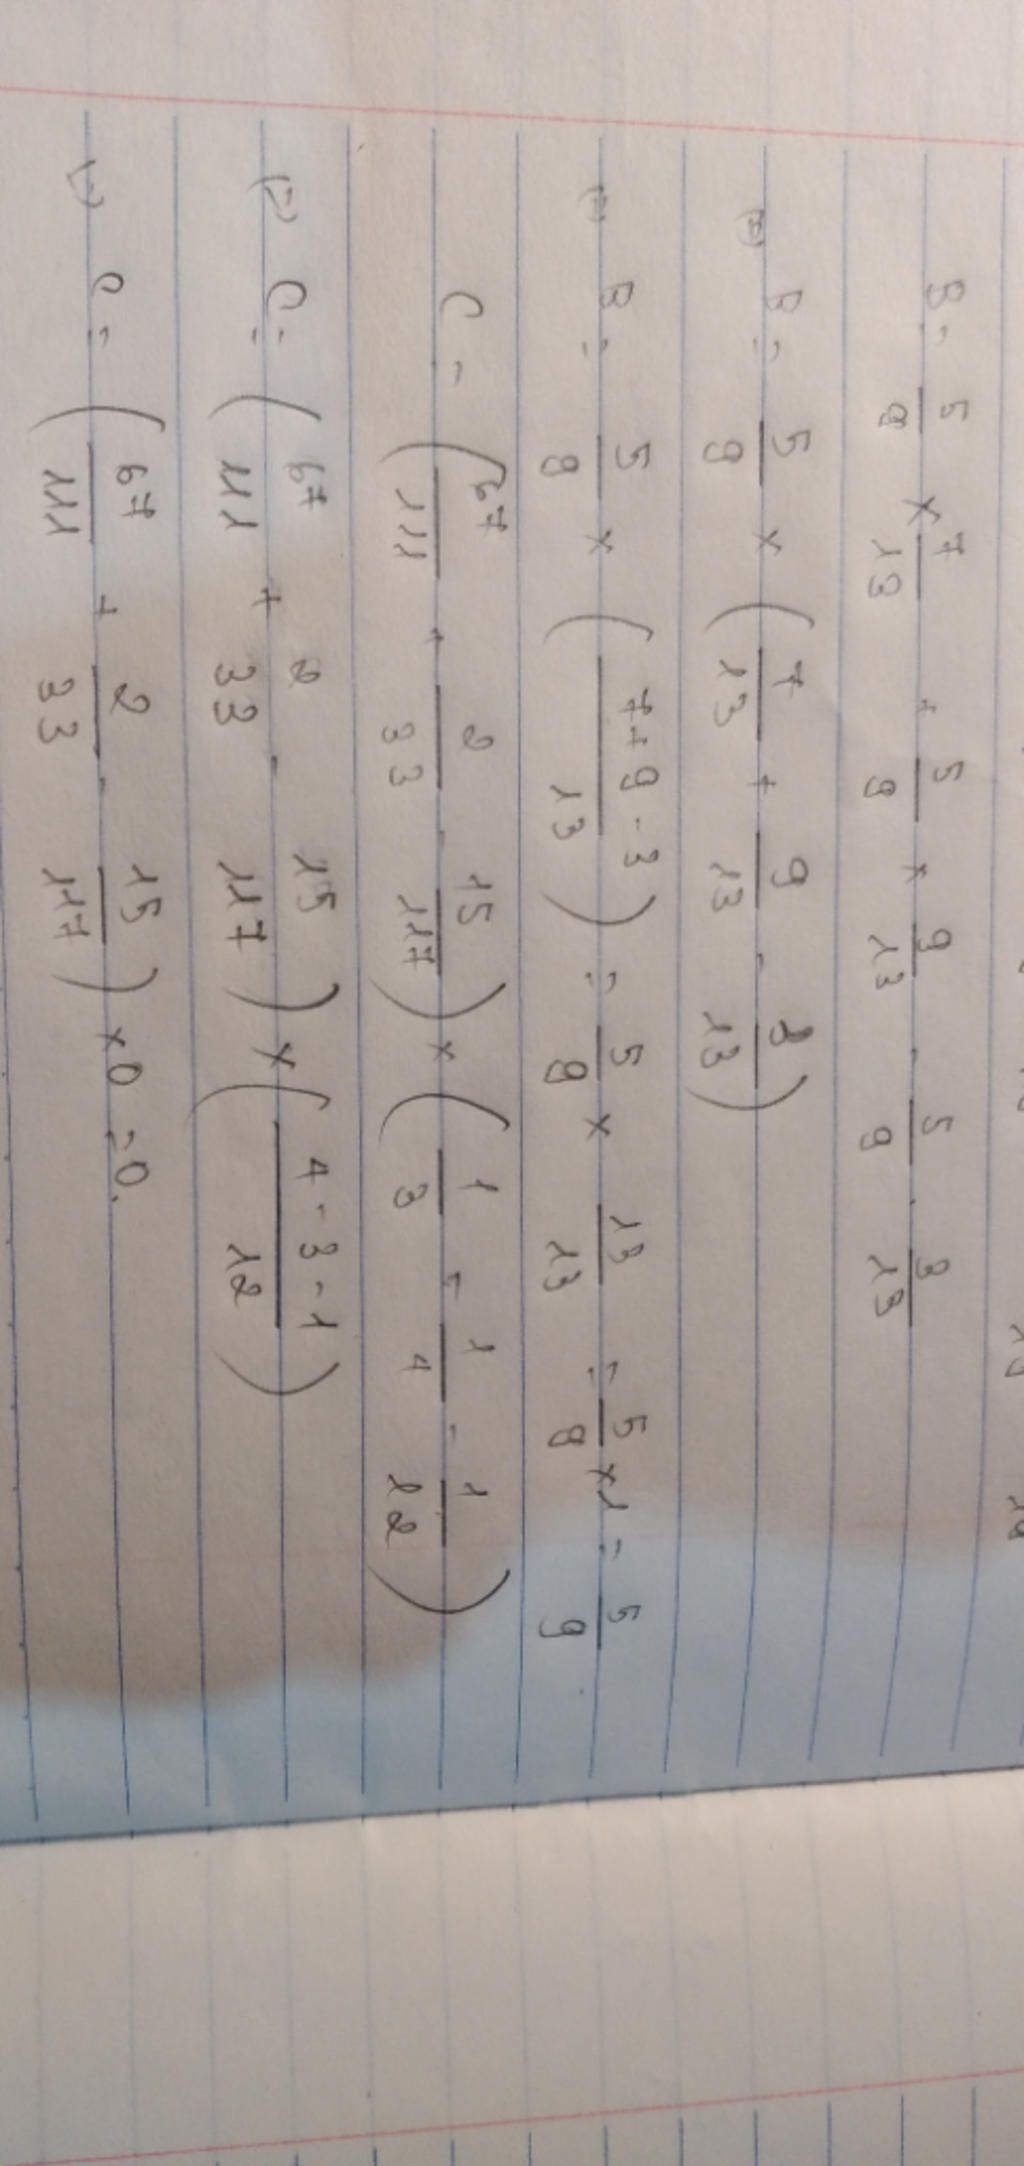 B = 5/9 × 7/13 + 5/9 × 9/13 - 5/9 . 3/13
(=) B = 5/9 × (7/13 + 9/13 - 3/13)
(=) B = 5/9 × (7+9-3/13) = 5/9 × 13/13 = 5/9 × 1 = 5/9
C = (67/111 + 2/33 - 15/117) × (1/3 - 1/4 - 1/12)
(=) C = (67/111 + 2/33 - 15/117) × (4-3-1/12)
(=) C = (67/111 + 2/33 - 15/117) × 0 = 0.